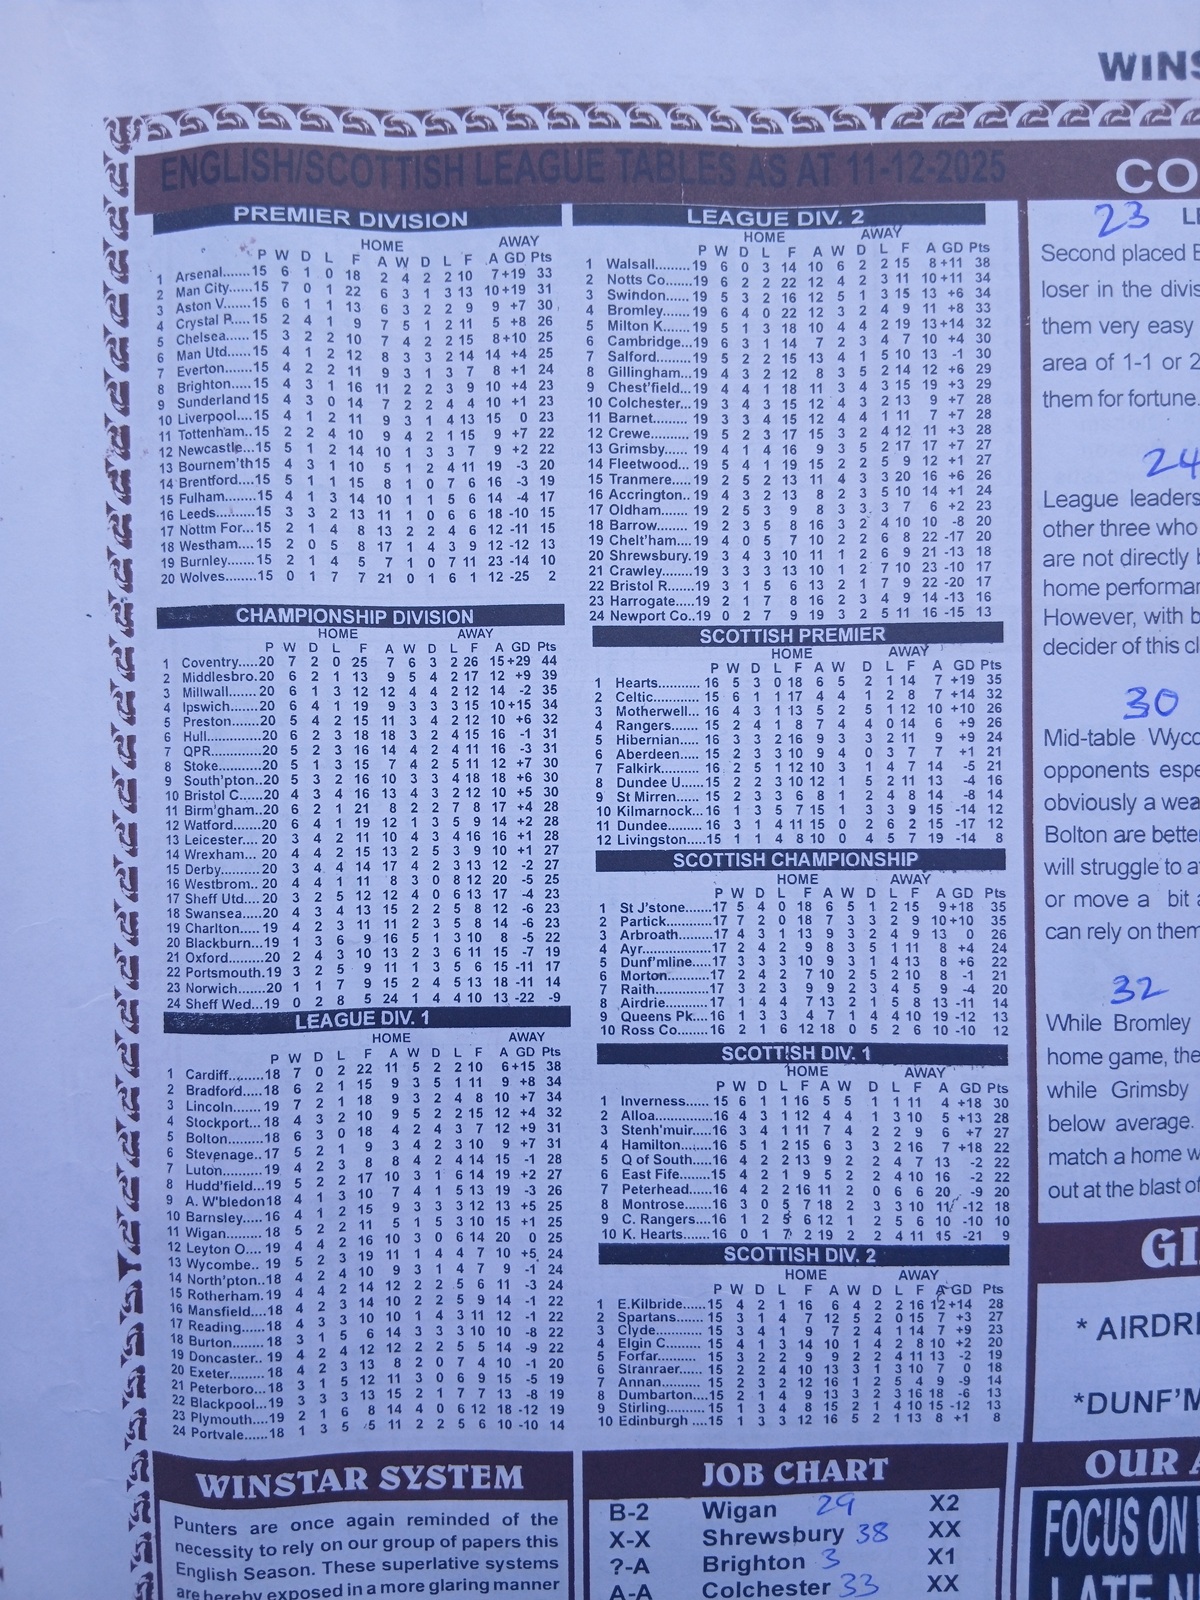 WINS
ENGLISH/SCOTTISH LEAGUE TABLES AS AT 11-12-2025
PREMIER DIVISION
HOME AWAY
P W D L F A W D L F A GD Pts
1 Arsenal.......15 6 1 0 18 2 4 2 2 10 7+19 33
2 Man City......15 7 0 1 22 6 3 1 3 13 10+19 31
3 Aston V.......15 6 1 1 13 6 3 2 2 9 9 +7 30
4 Crystal P.....15 2 4 1 9 7 5 1 2 11 5 +8 26
5 Chelsea.......15 3 2 2 10 7 4 2 2 15 8+10 25
6 Man Utd.......15 4 1 2 12 8 3 3 2 14 14 +4 25
7 Everton.......15 4 2 2 11 9 3 1 3 7 8 +1 24
8 Brighton......15 4 3 1 16 11 2 2 3 9 10 +4 23
9 Sunderland 15 4 3 0 14 7 2 2 4 4 10 +1 23
10 Liverpool....15 4 1 2 11 9 3 1 4 13 15 0 23
11 Tottenham..15 2 2 4 10 9 4 2 1 15 9 +7 22
12 Newcastle...15 5 1 2 14 10 1 3 3 7 9 +2 22
13 Bournem'th15 4 3 1 10 5 1 2 4 11 19 -3 20
14 Brentford....15 5 1 1 15 8 1 0 7 6 16 -3 19
15 Fulham.......15 4 1 3 14 10 1 1 5 6 14 -4 17
16 Leeds.........15 3 3 2 13 11 1 0 6 6 18 -10 15
17 Nottm For...15 2 1 4 8 13 2 2 4 6 12 -11 15
18 Westham....15 2 0 5 8 17 1 4 3 9 12 -12 13
19 Burnley......15 2 1 4 5 7 1 0 7 11 23 -14 10
20 Wolves.......15 0 1 7 7 21 0 1 6 1 12 -25 2
CHAMPIONSHIP DIVISION
HOME AWAY
P W D L F A W D L F A GD Pts
1 Coventry.....20 7 2 0 25 7 6 3 2 26 15+29 44
2 Middlesbro.20 6 2 1 13 9 5 4 2 17 12 +9 39
3 Millwall.......20 6 1 3 12 12 4 4 2 12 14 -2 35
4 Ipswich.......20 6 4 1 19 9 3 3 3 15 10+15 34
5 Preston.......20 5 4 2 15 11 3 4 2 12 10 +6 32
6 Hull............20 6 2 3 18 18 3 2 4 15 16 -1 31
7 QPR...........20 5 2 3 16 14 4 2 4 11 16 -3 31
8 Stoke..........20 5 1 3 15 7 4 2 5 11 12 +7 30
9 South'pton..20 5 3 2 16 10 3 3 4 18 18 +6 30
10 Bristol C....20 4 3 4 16 13 4 3 2 12 10 +5 30
11 Birm'gham..20 6 2 1 21 8 2 2 7 8 17 +4 28
12 Watford......20 6 4 1 19 12 1 3 5 9 14 +2 28
13 Leicester....20 3 4 2 11 10 4 3 4 16 16 +1 28
14 Wrexham...20 4 4 2 15 13 2 5 3 9 10 +1 27
15 Derby........20 3 4 4 14 17 4 2 3 13 12 -2 27
16 Westbrom..20 4 4 1 11 8 3 0 8 12 20 -5 25
17 Sheff Utd...20 3 2 5 12 12 4 0 6 13 17 -4 23
18 Swansea...20 4 3 4 13 15 2 2 5 8 12 -6 23
19 Charlton....20 4 2 3 11 11 2 3 5 8 14 -6 23
20 Blackburn..19 1 3 6 9 16 5 1 3 10 8 -5 22
21 Oxford.......20 2 4 3 10 13 2 3 6 11 15 -7 19
22 Portsmouth.19 3 2 5 9 11 1 3 5 6 15 -11 17
23 Norwich.....20 1 1 7 9 15 2 4 5 13 18 -11 14
24 Sheff Wed...19 0 2 8 5 24 1 4 4 10 13 -22 -9
LEAGUE DIV. 1
HOME AWAY
P W D L F A W D L F A GD Pts
1 Cardiff.........18 7 0 2 22 11 5 2 2 10 6+15 38
2 Bradford.....18 6 2 1 15 9 3 5 1 11 9 +8 34
3 Lincoln.......19 7 2 1 18 9 3 2 4 8 10 +7 34
4 Stockport....18 4 3 2 10 9 5 2 2 15 12 +4 32
5 Bolton........18 6 3 0 18 4 2 4 3 7 12 +9 31
6 Stevenage..17 5 2 1 9 3 4 2 3 10 9 +7 31
7 Luton.........19 4 2 3 8 8 4 2 4 14 15 -1 28
8 Hudd'field...19 5 2 2 17 10 3 1 6 14 19 +2 27
9 A. W'bledon18 4 1 3 10 7 4 1 5 13 19 -3 26
10 Barnsley....16 4 1 2 15 9 3 3 3 12 13 +5 25
11 Wigan........18 5 2 2 11 5 1 5 3 10 15 +1 25
12 Leyton O....19 4 4 2 16 10 3 0 6 14 20 0 25
13 Wycombe..19 5 2 3 19 11 1 4 4 7 10 +5 24
14 North'pton..18 4 2 4 10 9 3 1 4 7 9 -1 24
15 Rotherham.19 4 4 2 14 12 2 2 5 6 11 -3 24
16 Mansfield....18 4 2 3 14 10 2 2 5 9 14 -1 22
17 Reading.....18 4 3 3 10 10 1 4 3 11 12 -1 22
18 Burton.......18 3 1 5 6 14 3 3 3 10 10 -8 22
19 Doncaster..19 4 2 4 12 12 2 2 5 5 14 -9 22
20 Exeter.......19 4 2 3 13 8 2 0 7 4 10 -1 20
21 Peterboro...18 3 1 5 12 11 3 0 6 9 15 -5 19
22 Blackpool...19 3 3 3 13 15 2 1 7 7 13 -8 19
23 Plymouth...19 2 1 6 8 14 4 0 6 12 18 -12 19
24 Portvale......18 1 3 5 5 11 2 2 5 6 10 -10 14
LEAGUE DIV. 2
HOME AWAY
P W D L F A W D L F A GD Pts
1 Walsall.........19 6 0 3 14 10 6 2 2 15 8+11 38
2 Notts Co......19 6 2 2 22 12 4 2 3 11 10+11 34
3 Swindon......19 5 3 2 16 12 5 1 3 15 13 +6 34
4 Bromley......19 6 4 0 22 12 3 2 4 9 11 +8 33
5 Milton K.......19 5 1 3 18 10 4 4 2 19 13+14 32
6 Cambridge...19 6 3 1 14 7 2 3 4 7 10 +4 30
7 Salford........19 5 2 2 15 13 4 1 5 10 13 -1 30
8 Gillingham...19 4 3 2 12 8 3 5 2 14 12 +6 29
9 Chest'field...19 4 4 1 18 11 3 4 3 15 19 +3 29
10 Colchester...19 3 4 3 15 12 4 3 2 13 9 +7 28
11 Barnet........19 3 3 4 15 12 4 4 1 11 7 +7 28
12 Crewe.........19 5 2 3 17 15 3 2 4 12 11 +3 28
13 Grimsby......19 4 1 4 16 9 3 5 2 17 17 +7 27
14 Fleetwood...19 5 4 1 19 15 2 2 5 9 12 +1 27
15 Tranmere....19 2 5 2 13 11 4 3 3 20 16 +6 26
16 Accrington..19 4 3 2 13 8 2 3 5 10 14 +1 24
17 Oldham.......19 2 5 3 9 8 3 3 3 7 6 +2 23
18 Barrow........19 2 3 5 8 16 3 2 4 10 10 -8 20
19 Chelt'ham....19 4 0 5 7 10 2 2 6 8 22 -17 20
20 Shrewsbury.19 3 4 3 10 11 1 2 6 9 21 -13 18
21 Crawley.......19 3 3 3 13 10 1 2 7 10 23 -10 17
22 Bristol R......19 3 1 5 6 13 2 1 7 9 22 -20 17
23 Harrogate....19 2 1 7 8 16 2 3 4 9 14 -13 16
24 Newport Co..19 0 2 7 9 19 3 2 5 11 16 -15 13
SCOTTISH PREMIER
HOME AWAY
P W D L F A W D L F A GD Pts
1 Hearts..........16 5 3 0 18 6 5 2 1 14 7 +19 35
2 Celtic...........15 6 1 1 17 4 4 1 2 8 7 +14 32
3 Motherwell...16 4 3 1 13 5 2 5 1 12 10 +10 26
4 Rangers.......15 2 4 1 8 7 4 4 0 14 6 +9 26
5 Hibernian.....16 3 3 2 16 9 3 3 2 11 9 +9 24
6 Aberdeen.....15 2 3 3 10 9 4 0 3 7 7 +1 21
7 Falkirk.........16 2 5 1 12 10 3 1 4 7 14 -5 21
8 Dundee U.....15 2 2 3 10 12 1 5 2 11 13 -4 16
9 St Mirren......15 2 3 3 6 8 1 2 4 8 14 -8 14
10 Kilmarnock...16 1 3 5 7 15 1 3 3 9 15 -14 12
11 Dundee.......16 3 1 4 11 15 0 2 6 2 15 -17 12
12 Livingston....15 1 1 4 8 10 0 4 5 7 19 -14 8
SCOTTISH CHAMPIONSHIP
HOME AWAY
P W D L F A W D L F A GD Pts
1 St J'stone.......17 5 4 0 18 6 5 1 2 15 9+18 35
2 Partick..........17 7 2 0 18 7 3 3 2 9 10+10 35
3 Arbroath.......17 4 3 1 13 9 3 2 4 9 13 0 26
4 Ayr...............17 2 4 2 9 8 3 5 1 11 8 +4 24
5 Dunf'mline.....17 3 3 3 10 9 3 1 4 13 8 +6 22
6 Morton..........17 2 4 2 7 10 2 5 2 10 8 -1 21
7 Raith............17 3 2 3 9 9 2 3 4 5 9 -4 20
8 Airdrie..........17 1 4 4 7 13 2 1 5 8 13 -11 14
9 Queens Pk....16 1 3 3 6 9 1 4 4 10 19 -12 13
10 Ross Co.......16 2 1 6 12 18 0 5 2 6 10 -10 12
SCOTTISH DIV. 1
HOME AWAY
P W D L F A W D L F A GD Pts
1 Inverness......15 6 1 1 16 5 5 1 1 11 4 +18 30
2 Alloa.............16 4 3 1 12 4 4 1 3 10 5 +13 28
3 Stenh'muir....16 3 4 1 11 7 4 2 2 9 6 +7 27
4 Hamilton.......16 5 1 2 15 6 3 3 2 16 7 +18 22
5 Q of South....16 4 2 2 13 9 2 2 4 7 13 -2 22
6 East Fife.......16 4 2 1 9 5 2 2 4 10 16 -2 22
7 Peterhead.....16 4 2 2 16 11 2 0 6 6 20 -9 20
8 Montrose......16 3 0 5 7 18 2 3 3 10 11 -12 18
9 C. Rangers...16 1 2 5 6 12 1 2 5 6 10 -10 10
10 K. Hearts.....16 0 1 7 2 19 2 2 4 11 15 -21 9
SCOTTISH DIV. 2
HOME AWAY
P W D L F A W D L F A GD Pts
1 E.Kilbride......15 4 2 1 16 6 4 2 2 16 12+14 28
2 Spartans.......15 3 1 4 7 12 5 2 0 15 7 +3 27
3 Clyde............15 3 4 1 9 7 2 4 1 14 7 +9 23
4 Elgin C.........15 4 1 3 14 10 1 4 2 8 10 +2 20
5 Forfar...........15 3 2 2 9 9 2 2 4 11 13 -2 19
6 Stranraer......15 2 2 4 10 13 3 1 3 10 7 0 18
7 Annan..........15 2 3 2 12 16 1 2 5 4 9 -9 14
8 Dumbarton....15 2 1 4 9 13 2 3 3 16 18 -6 13
9 Stirling.........15 1 3 4 8 15 2 1 4 10 15 -12 13
10 Edinburgh ....15 1 3 3 12 16 5 2 1 13 8 +1 8
WINSTAR SYSTEM
Punters are once again reminded of the
necessity to rely on our group of papers this
English Season. These superlative systems
are hereby exposed in a more glaring manner
JOB CHART
B-2 Wigan 29 X2
X-X Shrewsbury 38 XX
?-A Brighton 3 X1
A-A Colchester 33 XX
CO
23 LE
Second placed B
loser in the divis
them very easy
area of 1-1 or 2
them for fortune.
24
League leaders
other three who
are not directly b
home performan
However, with b
decider of this cl
30
Mid-table Wyco
opponents espe
obviously a wea
Bolton are better
will struggle to a
or move a bit a
can rely on them
32
While Bromley
home game, the
while Grimsby
below average.
match a home w
out at the blast of
GI
* AIRDRI
*DUNF'M
OUR A
FOCUS ON
LATE N